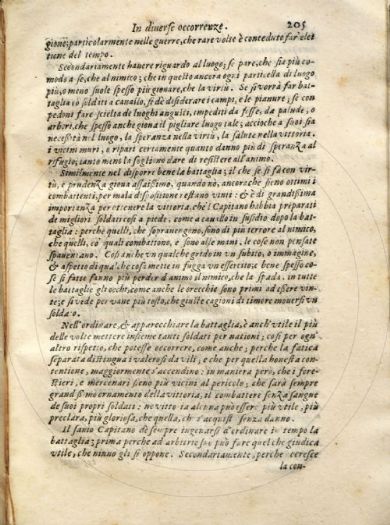 In diuerse occorrenze. 205
gione; particolarmente nelle guerre, che rare volte è conceduto far elet
tione del tempo.
Secondariamente hauere riguardo al luogo, se pare, che sia più co-
modo a se, che al nimico; che in questo ancora ogni particella di luogo
più, o meno suole spesso più giouare, che la virtù. Se si vorrà far bat-
taglia co soldati a cauallo, si dè desiderare i campi, e le pianure; se con
pedoni fare scielta di luoghi angusti, impediti da fosse, da palude, o
arbori, che spesso anche gioua il pigliare luogo tale; accioche a suoi sia
necessità nel luogo, la speranza nella virtù, la salute nella vittoria.
i vicini muri, e ripari certamente quanto danno più di speranza al
rifugio; tanto meno la sogliono dare di resistere all'animo.
Similmente nel disporre bene la battaglia; il che se si fa con vir-
tù, e prudenza gioua assaissimo, quando nò, ancorache sieno ottimi i
combattenti, per mala dispositione restano vinti: & è di grandissima
importanza per ottenere la vittoria, che'l Capitano habbia preparati
de migliori soldati così a piede, come a cauallo in susidio dopo la bat-
taglia: perche quelli, che soprauengono, sono di più terrore al nimico,
che quelli, co' quali combattono, e sono alle mani, le cose non pensate
spauentano. Così anche vn qualche grido in vn subito, o immagine,
& aspetto di qual che cosa mette in fugga vn essercito; e bene spesso co-
sì si fatte fanno più perdere d'animo il nimico, che la spada. in tutte
le battaglie gli occhi, come anche le orecchie sono primi ad essere vin-
te; e si vede per vane più tosto, che giuste cagioni di timore mouersi vn
soldato.
Nell'ordinare, & apparecchiare la battaglia, è anch'vtile il più
delle volte mettere insieme tanti soldati per nationi; così per ogn'
altro rispetto, che potesse occorrere, come anche; perche la fatica
separata distingua i valorosi da vili; e che per quella honesta con-
tentione, maggiormente s'accendino: in maniera però, che i fore-
stieri, e mercenari sieno più vicini al pericolo; che sarà sempre
grandissimo ornamento della vittoria, il combattere senza sangue
de suoi propri soldati: ne vittoria alcuna può esser più vtile, più
preclara, più gloriosa, che quella, che s'acquista senza danno.
Il santo Capitano dè sempre ingenarsi d'ordinare in tempo la
battaglia; prima perche ad arbitrio suo può fare quel che giudica
vtile, che niuno gli si oppone. Secondariamente, perche cresce
la con-